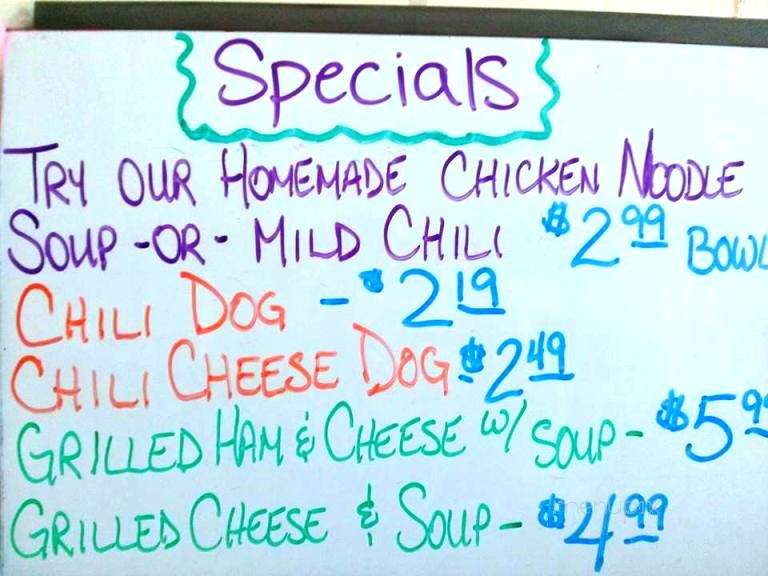 Specials
TRY OUR HOMEMADE CHICKEN NOODLE
SOUP -OR- MILD CHILI $2.99 BOWL
CHILI DOG - $2.19
CHILI CHEESE DOG $2.49
GRILLED HAM & CHEESE w/ SOUP - $5.99
GRILLED CHEESE & SOUP - $4.99